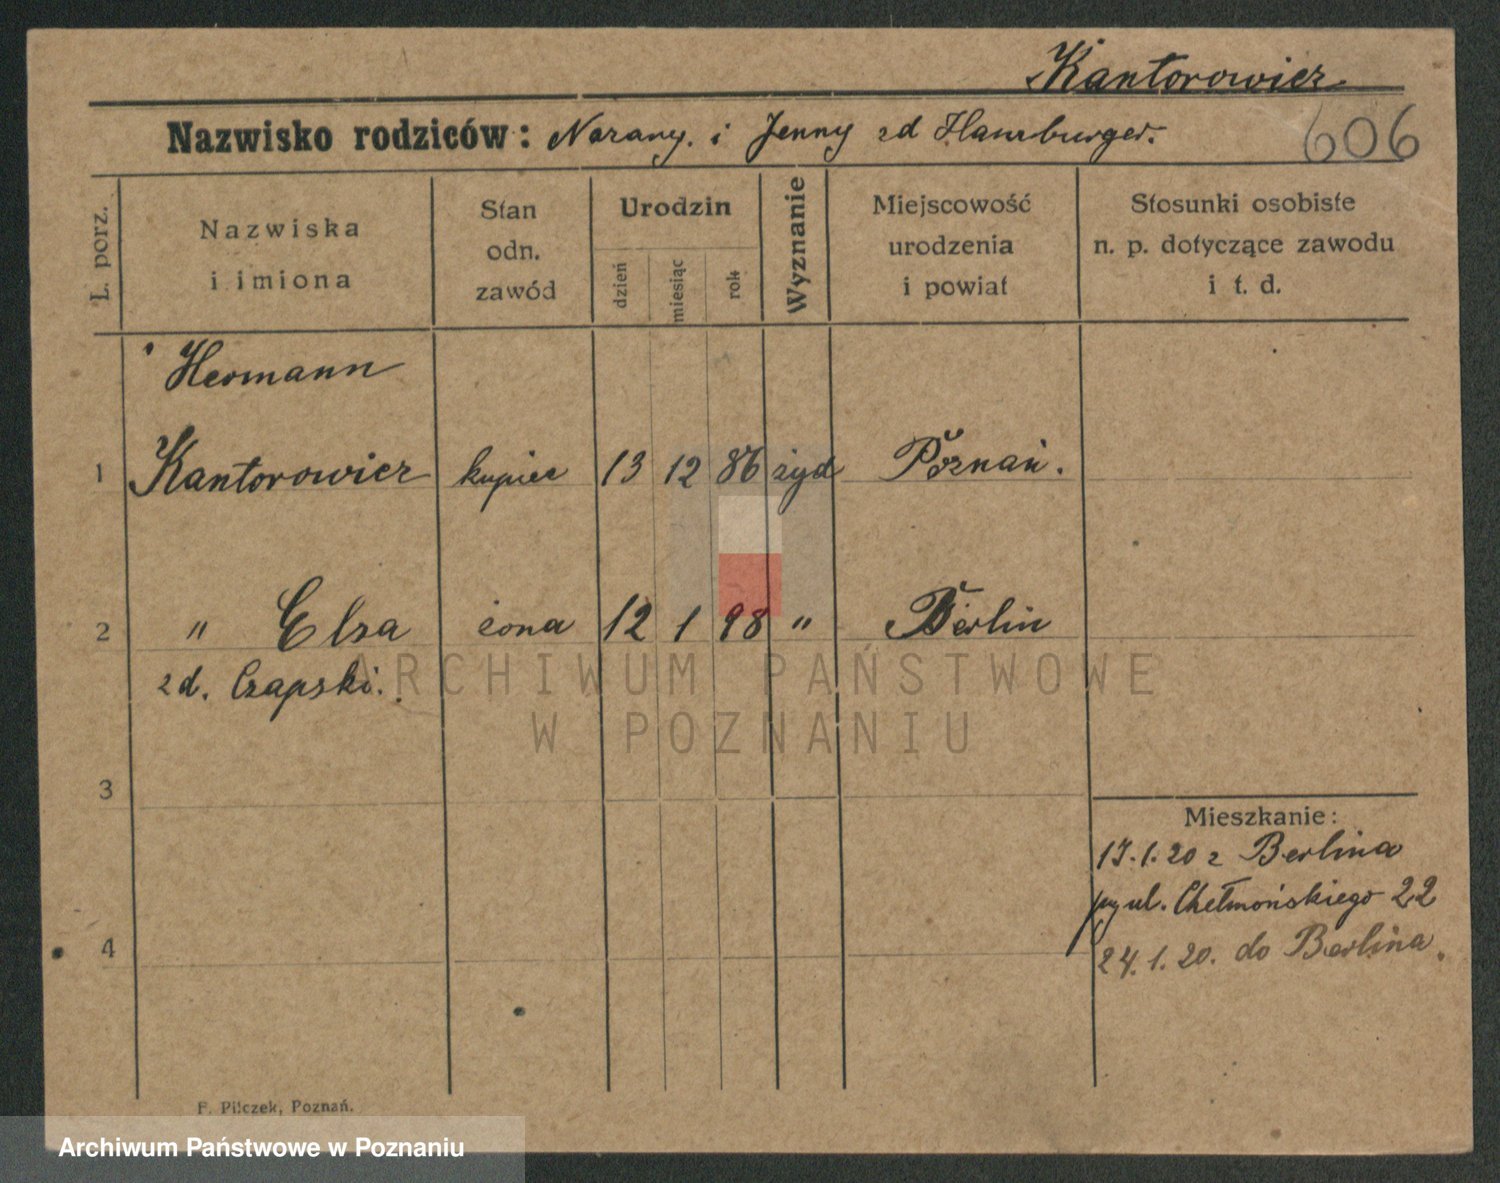 Kantorowicz
Nazwisko rodziców: Nazary. i Jenny zd Hamburger.
606
L. porz.
Nazwiska
i imiona
Stan
odn.
zawód
Urodzin
dzień
miesiąc
rok
Wyznanie
Miejscowość
urodzenia
i powiat
Stosunki osobiste
n. p. dotyczące zawodu
i t. d.
Hermann
1 Kantorowicz kupiec 13 12 86 żyd Poznań.
2 " Elza żona 12 1 98 " Berlin
zd. Czapski.
ARCHIWUM PAŃSTWOWE
W POZNANIU
3
Mieszkanie:
17.1.20 z Berlina
ul. Chełmońskiego 22
4
24.1.20. do Berlina.
F. Pilczek, Poznań.
Archiwum Państwowe w Poznaniu